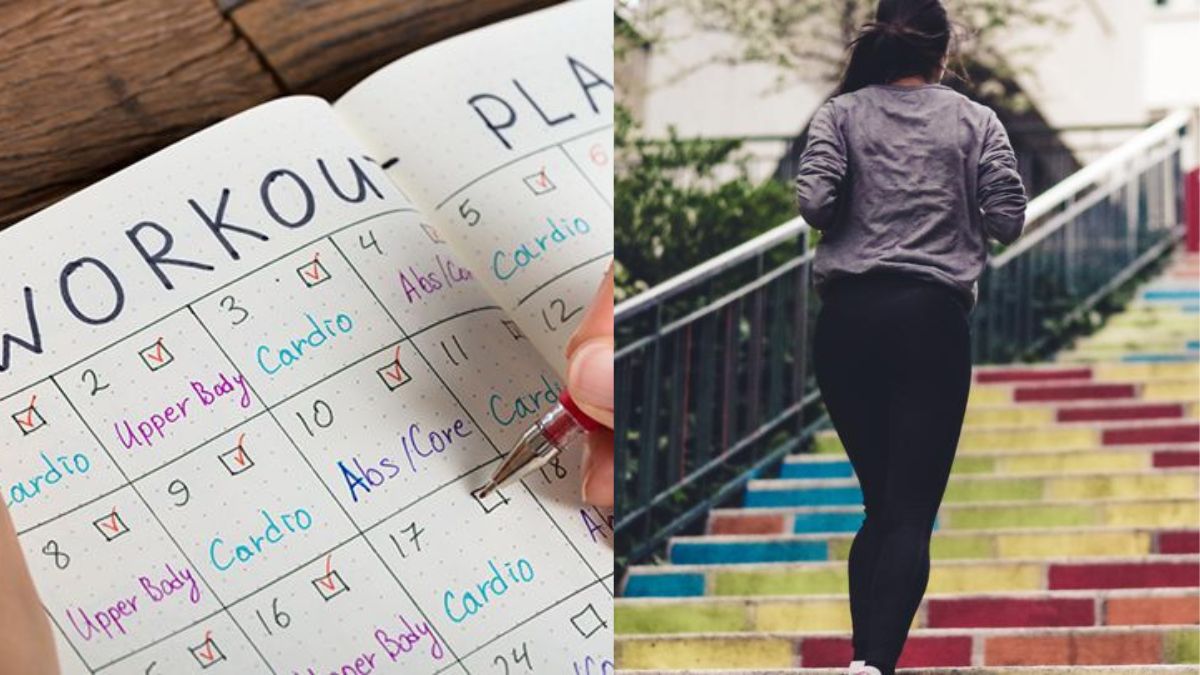 WORKOUT PLA
ardio
2
Upper Body
3
Cardio
4
Abs/Co
5
Cardio
6
8
Upper Body
9
Cardio
10
Abs/Core
11
Card
12
16
Upper Body
17
Cardio
18
Ab
24